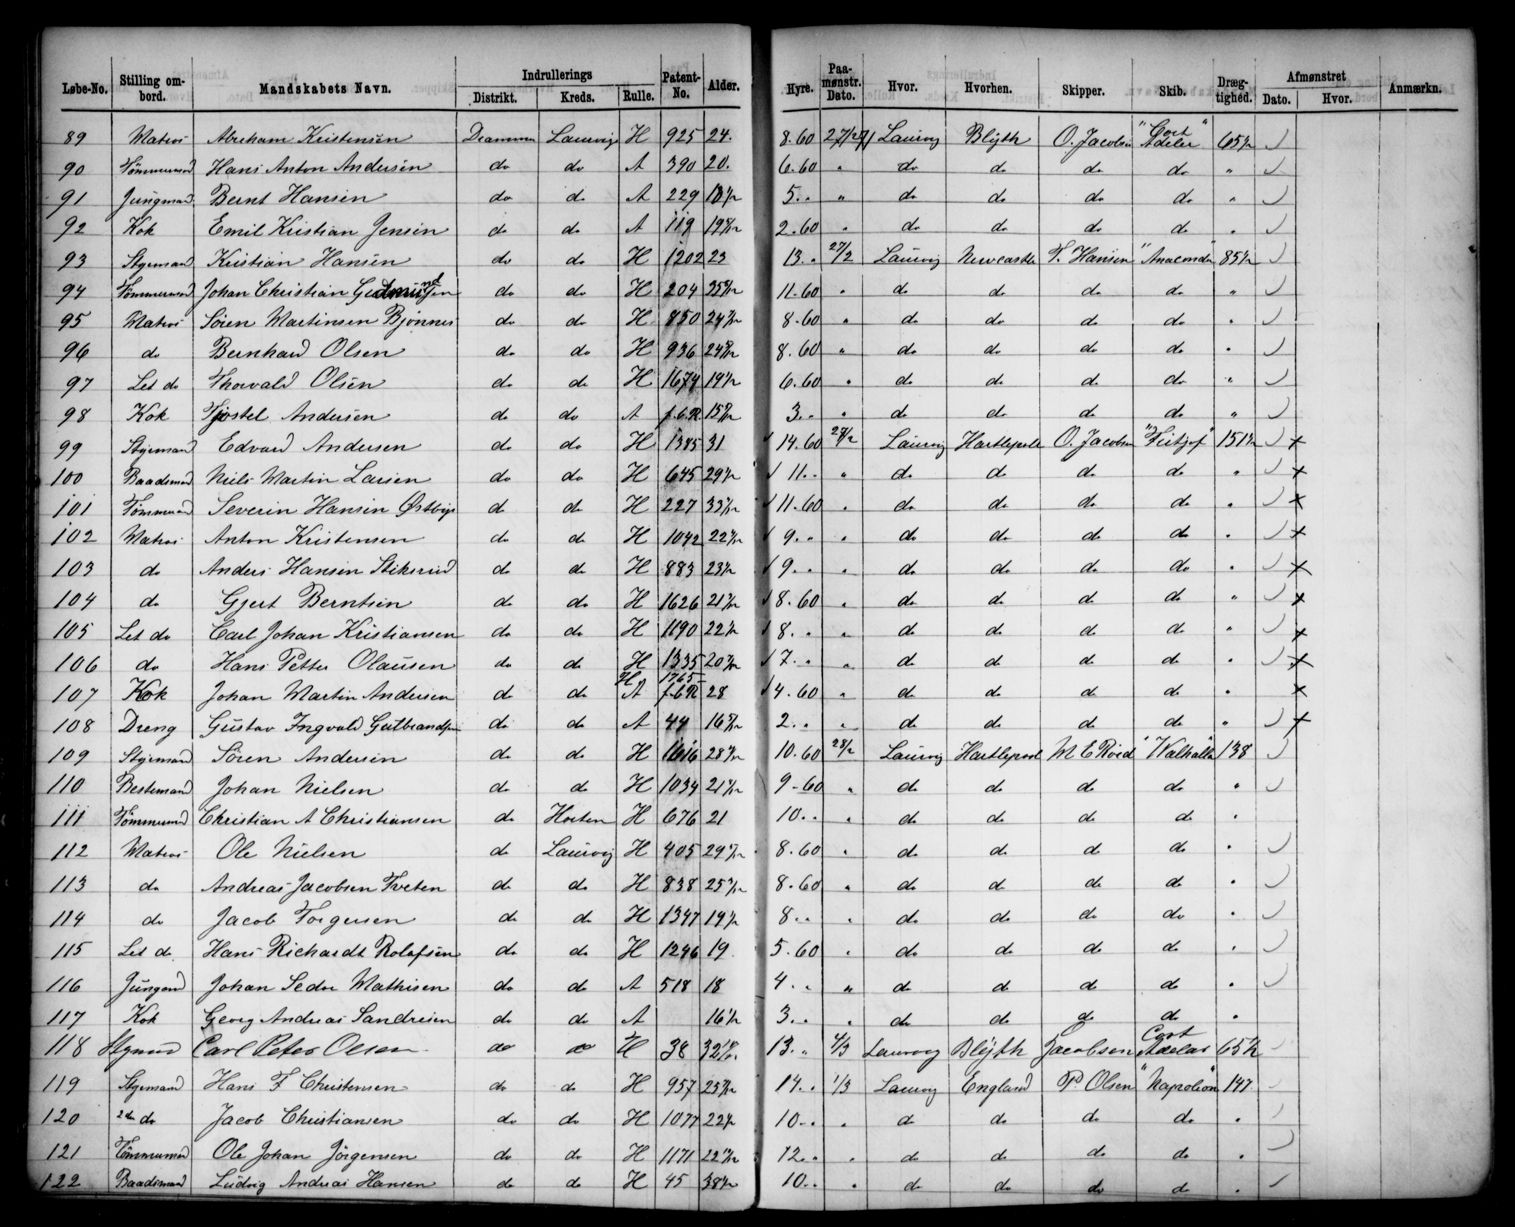 Løbe-No. Stilling ombord. Mandskabets Navn. Indrullerings Distrikt. Kreds. Rulle. Patent-No. Alder. Hyre. Paamønstr. Dato. Hvor. Hvorhen. Skipper. Skib. Drægtighed. Afmønstret Dato. Hvor. Anmærkn.
89 Matros Abraham Kristensen Drammen Laurvig H 925 24. 8.60 27/2 71 Laurvig Blÿth O. Jacobsen "Cort Adeler" 65½
90 Tømmermand Hans Anton Andersen do do A 390 20. 6.60 " do do do do "
91 Jungmand Bernt Hansen do do A 229 5. . " do do do do "
92 Kok Emil Kristian Jensen do do A 119 2.60 " do do do do "
93 Styrmand Kristian Hansen do do H 1202 23 13. " 27/2 Laurvig Newcastle T. Hansen 85½
94 Tømmermand Johan Christian do do H 204 11.60 " do do do do "
95 Matros Søren Martinsen Bjönnes do do H 850 8.60 " do do do do "
96 do Bernhard Olsen do do H 936 8.60 " do do do do "
97 Let do Thorvald Olsen do do H 1674 6.60 " do do do do "
98 Kok Tjostel Andersen do do A f.6R 3. . " do do do do "
99 Styrmand Edvard Andersen do do H 1385 31 14.60 28/2 Laurvig Hartlepool O. Jacobsen "Fritjof" 151½ x
100 Baadsmand Niels Martin Larsen do do H 645 11. . " do do do do " x
101 Tømmermand Severin Hansen Østbye do do H 227 11.60 " do do do do " x
102 Matros Anton Kristensen do do H 1042 9. " " do do do do " x
103 do Anders Hansen Stiksrud do do H 883 9. . " do do do do " x
104 do Gjert Berntsen do do H 1626 8.60 " do do do do " x
105 Let do Carl Johan Kristiansen do do H 1190 8. . " do do do do " x
106 do Hans Petter Olausen do do H 1335 7. . " do do do do " x
107 Kok Johan Martin Andersen do do H A 1765 f.6R 28 4.60 " do do do do " x
108 Dreng Gustav Ingvald do do A 44 2. . " do do do do " x
109 Styrmand Søren Andersen do do H 1616 10.60 28/2 Laurvig Hartlepool M E Röed "Walhalla" 138
110 Bestemand Johan Nielsen do do H 1034 9-60 " do do do do "
111 Tømmermand Christian A Christiansen do Horten H 676 21 10. . " do do do do "
112 Matros Ole Nielsen do Laurvig H 405 8.60 " do do do do "
113 do Andreas Jacobsen Tveten do do H 838 8.60 " do do do do "
114 do Jacob Torgersen do do H 1347 8. . " do do do do "
115 Let do. Hans Richardt Rolafsen do do H 1246 19. 5.60 " do do do do "
116 Jungmd Johan Mathisen do do A 518 18 4. . " do do do do "
117 Kok Georg Andreas do do A 3. . " do do do do "
118 Stymd Carl Peter Olsen do do H 38 13. " 4/3 Laurvig Blÿth Jacobsen Cort Adelar 65½
119 Styrmand Hans F Christensen do do H 957 14. . 1/3 Laurvig England P. Olsen "Napoleon" 147
120 2den do Jacob Christiansen do do H 1077 10-. " do do do do "
121 Tømmermand Ole Johan Jörgensen do do H 1171 12. . " do do do do "
122 Baadsmand Ludvig Andreas Hansen do do H 45 10. . " do do do do "